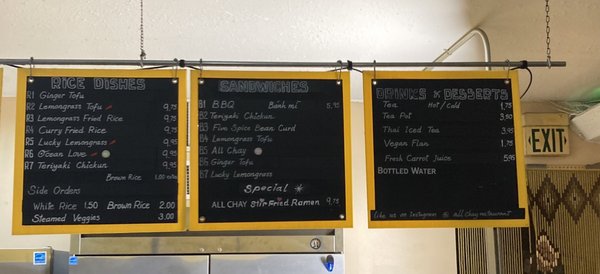 RICE DISHES
R1 Ginger Tofu
R2 Lemongrass Tofu 9.75
R3 Lemongrass Fried Rice 9.75
R4 Curry Fried Rice 9.75
R5 Lucky Lemongrass 9.75
R6 Ocean Love 9.75
R7 Teriyaki Chickun 9.75
Brown Rice 1.00 extra
Side Orders
White Rice 1.50 Brown Rice 2.00
Steamed Veggies 3.00
SANDWICHES
B1 BBQ Bánh mì 5.95
B2 Teriyaki Chickun
B3 Five Spice Bean Curd
B4 Lemongrass Tofu
B5 All Chay
B6 Ginger Tofu
B7 Lucky Lemongrass
Special
ALL CHAY Stir-Fried Ramen 9.75
DRINKS & DESSERTS
Tea Hot / Cold 1.75
Tea Pot 3.50
Thai Iced Tea 3.95
Vegan Flan 3.95
Fresh Carrot Juice 5.95
BOTTLED WATER
like us on instagram @ all chay restaurant
EXIT